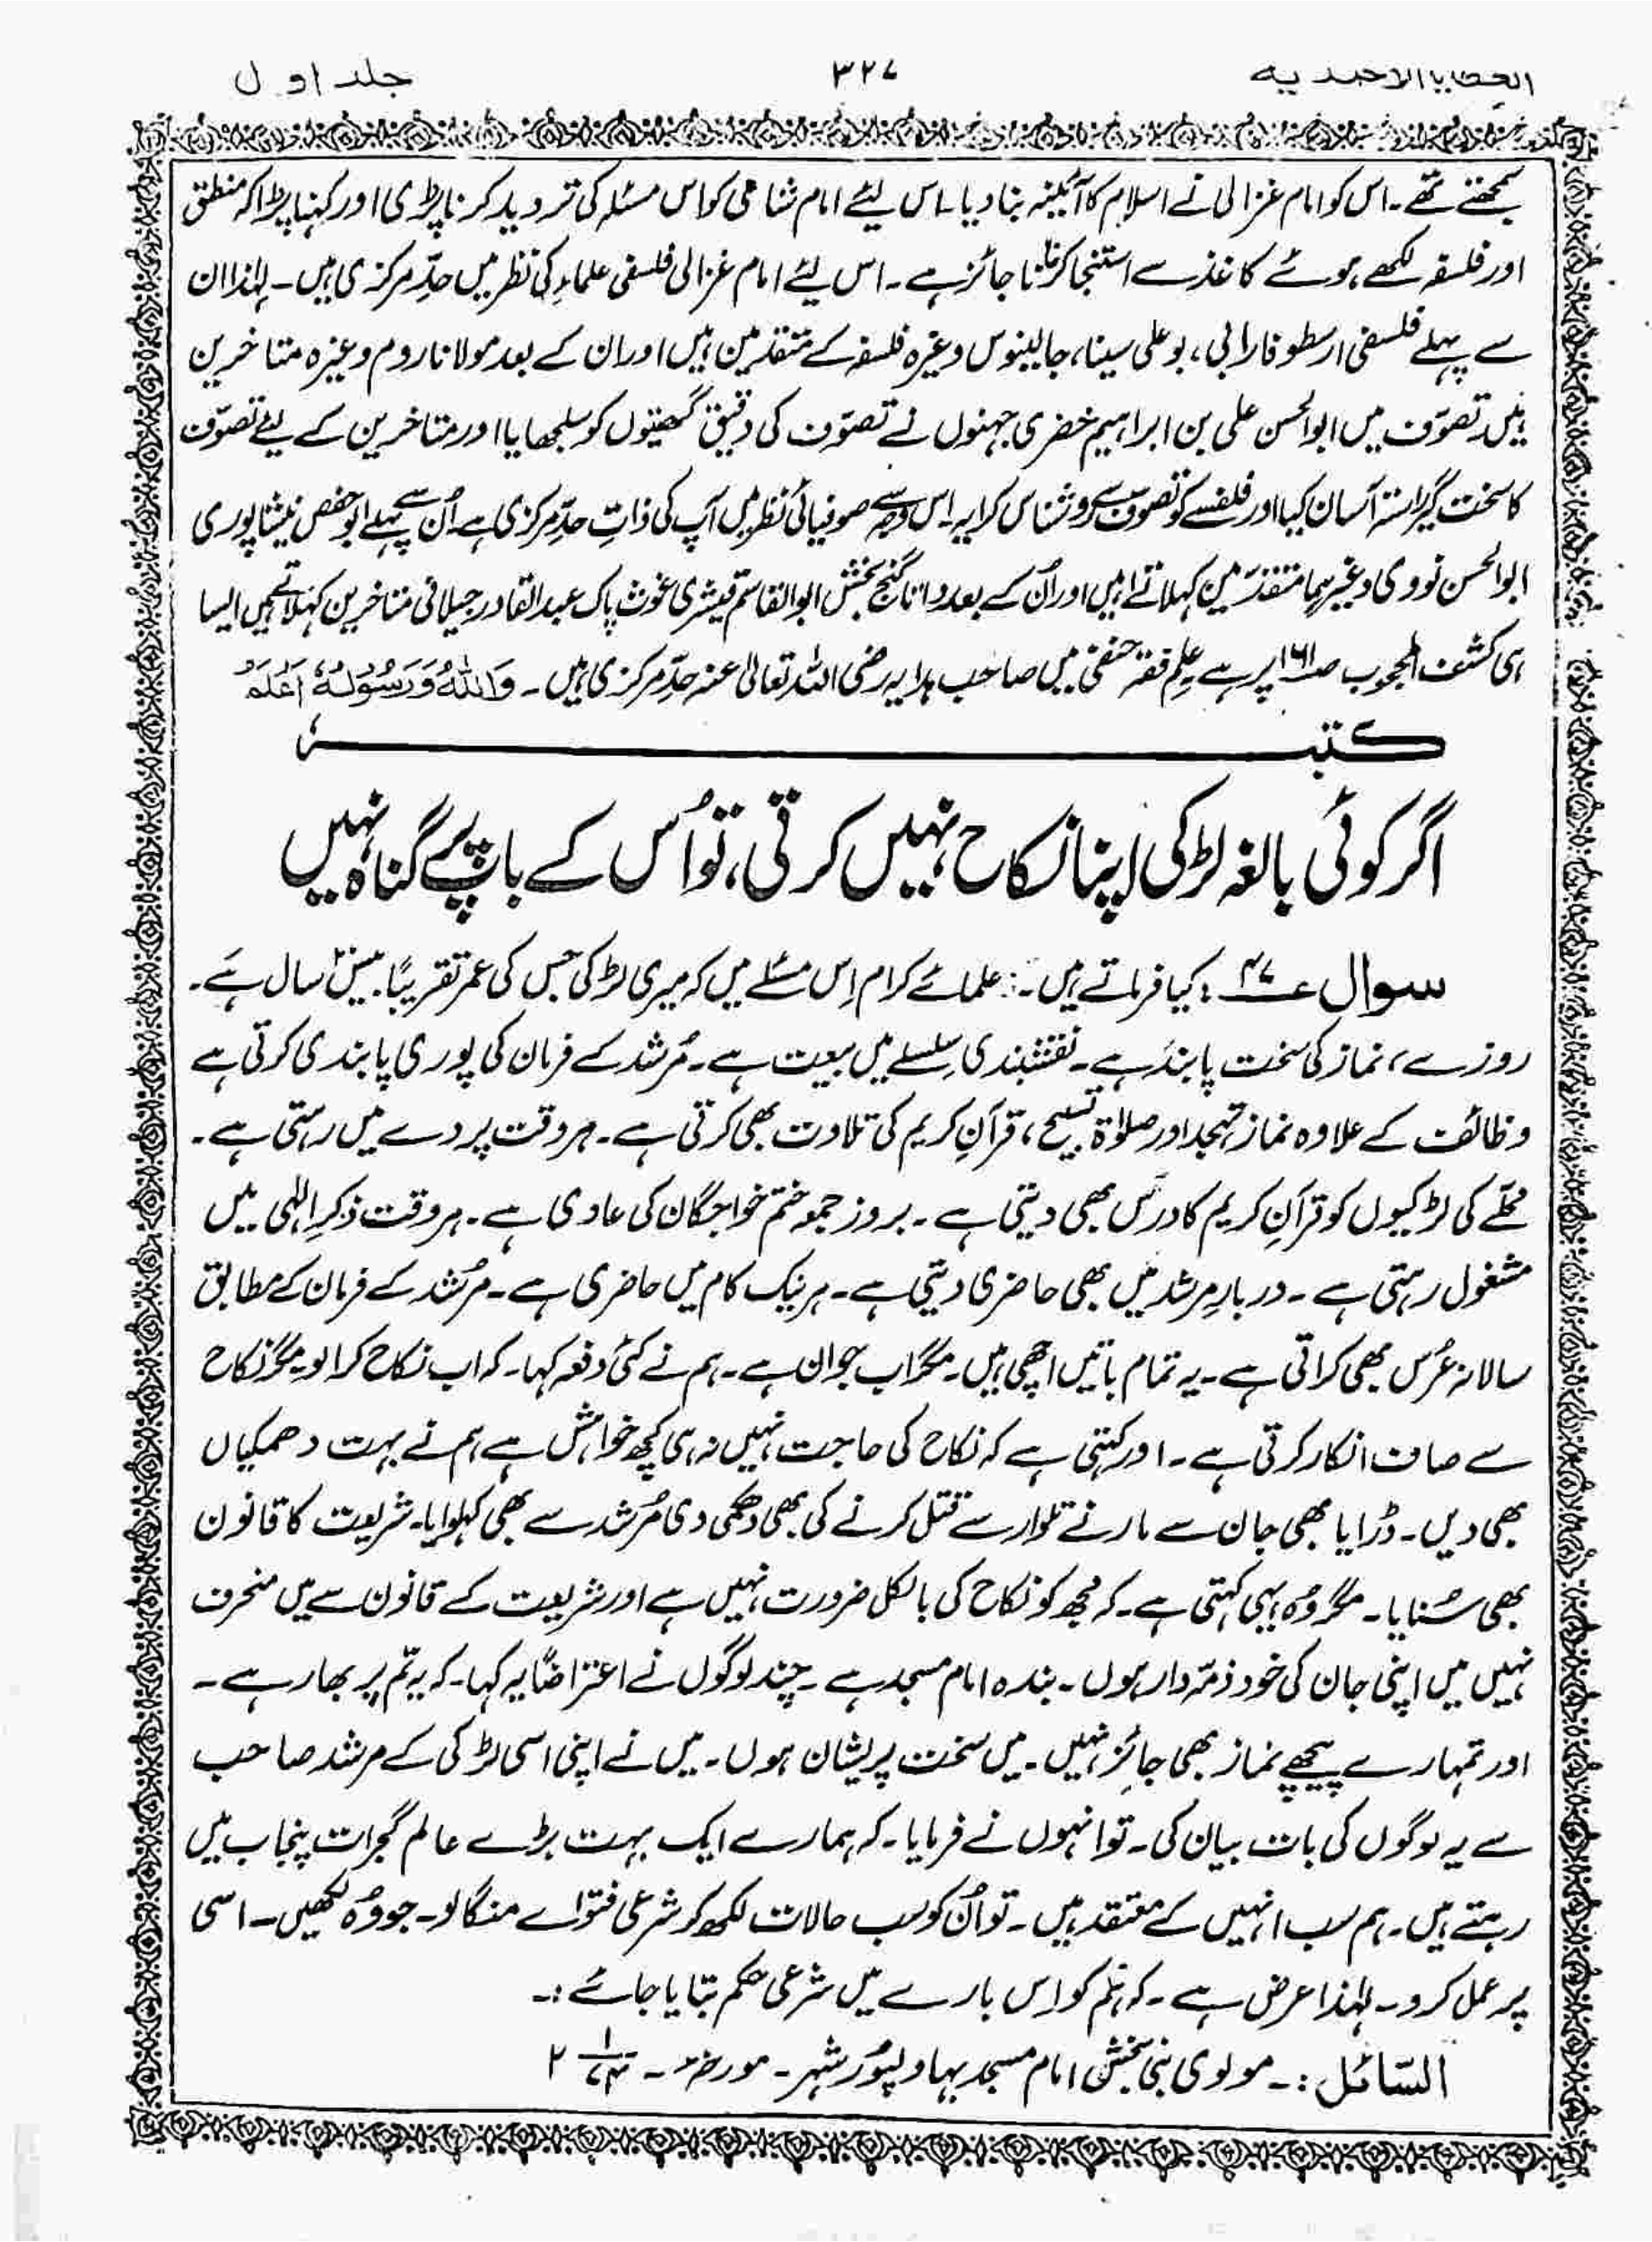 العطایا الاحمدیہ ۳۲۷ جلد اول
سمجھتے تھے۔ اس کو امام غزالی نے اسلام کا آئینہ بنا دیا۔ اس لیئے امام شامی کو اس مسئلہ کی تردید کرنا پڑی اور کہنا پڑا کہ منطق
اور فلسفہ لکھے ہوئے کاغذ سے استنجا کرنا جائز ہے۔ اس لیئے امام غزالی فلسفی علماء کی نظر میں حدِّ مرکزی ہیں۔ لہٰذا ان
سے پہلے فلسفی ارسطو فارابی، بو علی سینا، جالینوس وغیرہ فلسفہ کے متقدمین ہیں اور ان کے بعد مولانا روم وغیرہ متاخرین
ہیں تصوّف میں ابو الحسن علی بن ابراہیم خضری جہنوں نے تصوّف کی دقیق گھتیوں کو سلجھایا اور متاخرین کے لیئے تصوّف
کا سخت گیر راستہ آسان کیا اور فلسفے کو تصوّف سے روشناس کرایہ اس وجہ سے صوفیائی نظر میں آپ کی ذاتِ حدِّ مرکزی ہے اُن سے پہلے ابو حفص نیشاپوری
ابو الحسن نووی وغیرہما متقدّمین کہلاتے ہیں اور اُن کے بعد داتا گنج بخش ابو القاسم قیشری غوث پاک عبد القادر جیلانی متاخرین کہلاتے ہیں ایسا
ہی کشف المجوب صـ۱۶۱ پر ہے علمِ فقہ حنفی میں صاحب ہدایہ رضی اللہ تعالٰی عنہ حدِّ مرکزی ہیں۔ وَاللّٰہُ وَرَسُوْلُہٗ اَعْلَمُ
کتبہ
اگر کوئی بالغہ لڑکی اپنا نکاح نہیں کرتی، تو اُس کے باپ پر گناہ نہیں
سوال ۴۷ : کیا فرماتے ہیں۔ علمائے کرام اِس مسئلے میں کہ میری لڑکی جس کی عمر تقریبًا بیس ۲۰ سال ہے۔
روزے، نماز کی سخت پابند ہے۔ نقشبندی سِلسلے میں بیعت ہے۔ مُرشد کے فرمان کی پوری پابندی کرتی ہے
وظائف کے علاوہ نماز تہجد اور صلوٰۃ تسبیح، قرآنِ کریم کی تلاوت بھی کرتی ہے۔ ہر وقت پردے میں رہتی ہے۔
محلّے کی لڑکیوں کو قرآنِ کریم کا درس بھی دیتی ہے۔ بروز جمعہ ختم خواجگان کی عادی ہے۔ ہر وقت ذکرِ الٰہی میں
مشغول رہتی ہے۔ دربارِ مرشد میں بھی حاضری دیتی ہے۔ ہر نیک کام میں حاضری ہے۔ مُرشد کے فرمان کے مطابق
سالانہ عُرس بھی کراتی ہے۔ یہ تمام باتیں اچھی ہیں۔ مگر اب جوان ہے۔ ہم نے کئی دفعہ کہا۔ کہ اب نکاح کرالو۔ مگر نکاح
سے صاف انکار کرتی ہے۔ اور کہتی ہے کہ نکاح کی حاجت نہیں نہ ہی کچھ خواہش ہے ہم نے بہت دھمکیاں
بھی دیں۔ ڈرایا بھی جان سے مارنے تلوار سے قتل کرنے کی بھی دھمکی دی مُرشد سے بھی کہلوایا۔ شریعت کا قانون
بھی سُنایا۔ مگر وُہ یہی کہتی ہے۔ کہ مجھ کو نکاح کی بالکل ضرورت نہیں ہے اور شریعت کے قانون سے میں منحرف
نہیں میں اپنی جان کی خود ذمّہ دار ہوں۔ بندہ امام مسجد ہے۔ چند لوگوں نے اعتراضًا یہ کہا۔ کہ یہ تم پر بھار ہے۔
اور تمہارے پیچھے نماز بھی جائز نہیں۔ میں سخت پریشان ہوں۔ میں نے اپنی اسی لڑکی کے مرشد صاحب
سے یہ لوگوں کی بات بیان کی۔ تو انہوں نے فرمایا۔ کہ ہمارے ایک بہت بڑے عالم گجرات پنجاب میں
رہتے ہیں۔ ہم سب انہیں کے معتقد ہیں۔ تو اُن کو سب حالات لکھ کر شرعی فتوٰے منگالو۔ جو وُہ لکھیں۔ اسی
پر عمل کرو۔ لہٰذا عرض ہے۔ کہ ہم کو اِس بارے میں شرعی حکم بتایا جائے :۔
السّائل :۔ مولوی نبی بخش امام مسجد بہاولپور شہر۔ مورخہ۔